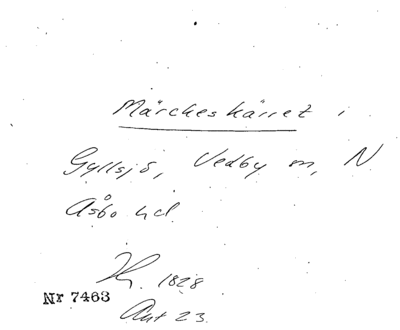 Märcheskärret i
Gyllsjö, Vedby m, N
Åsbo hd.
1828
Nr 7463
Akt 23.